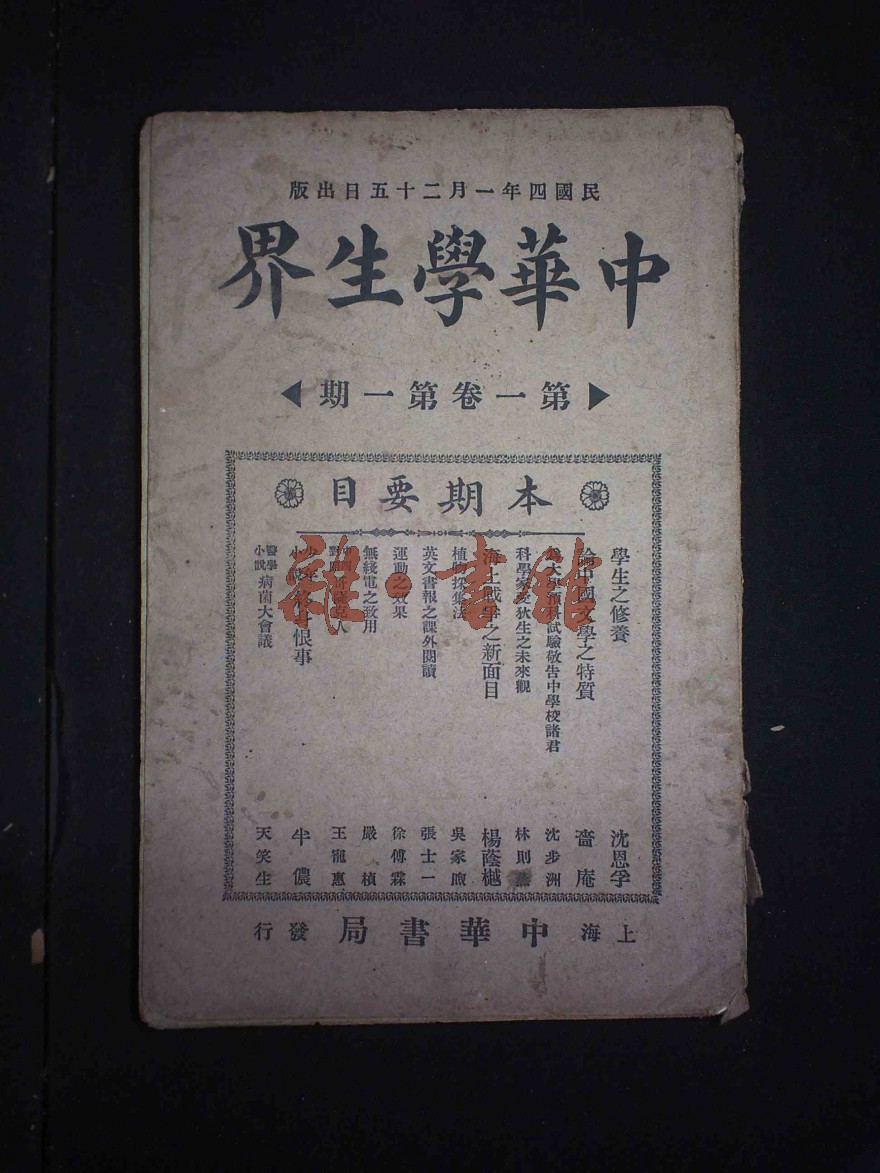 民國四年一月二十五日出版
中華學生界
第一卷第一期
本期要目
學生之修養 沈恩孚
論中國文學之特質 啬庵
爲大學預科試驗敬告中學校諸君 沈步洲
科學家愛狄生之未來觀 林則蒸
海上戰爭之新面目 楊蔭樾
植物採集法 吳家煦
英文書報之課外閱讀 張士一
運動之效果 徐傅霖
無綫電之效用 嚴楨
人 王寵惠
小說 恨事 半儂
醫學小說 病菌大會議 天笑生
上海中華書局發行
雜·書館